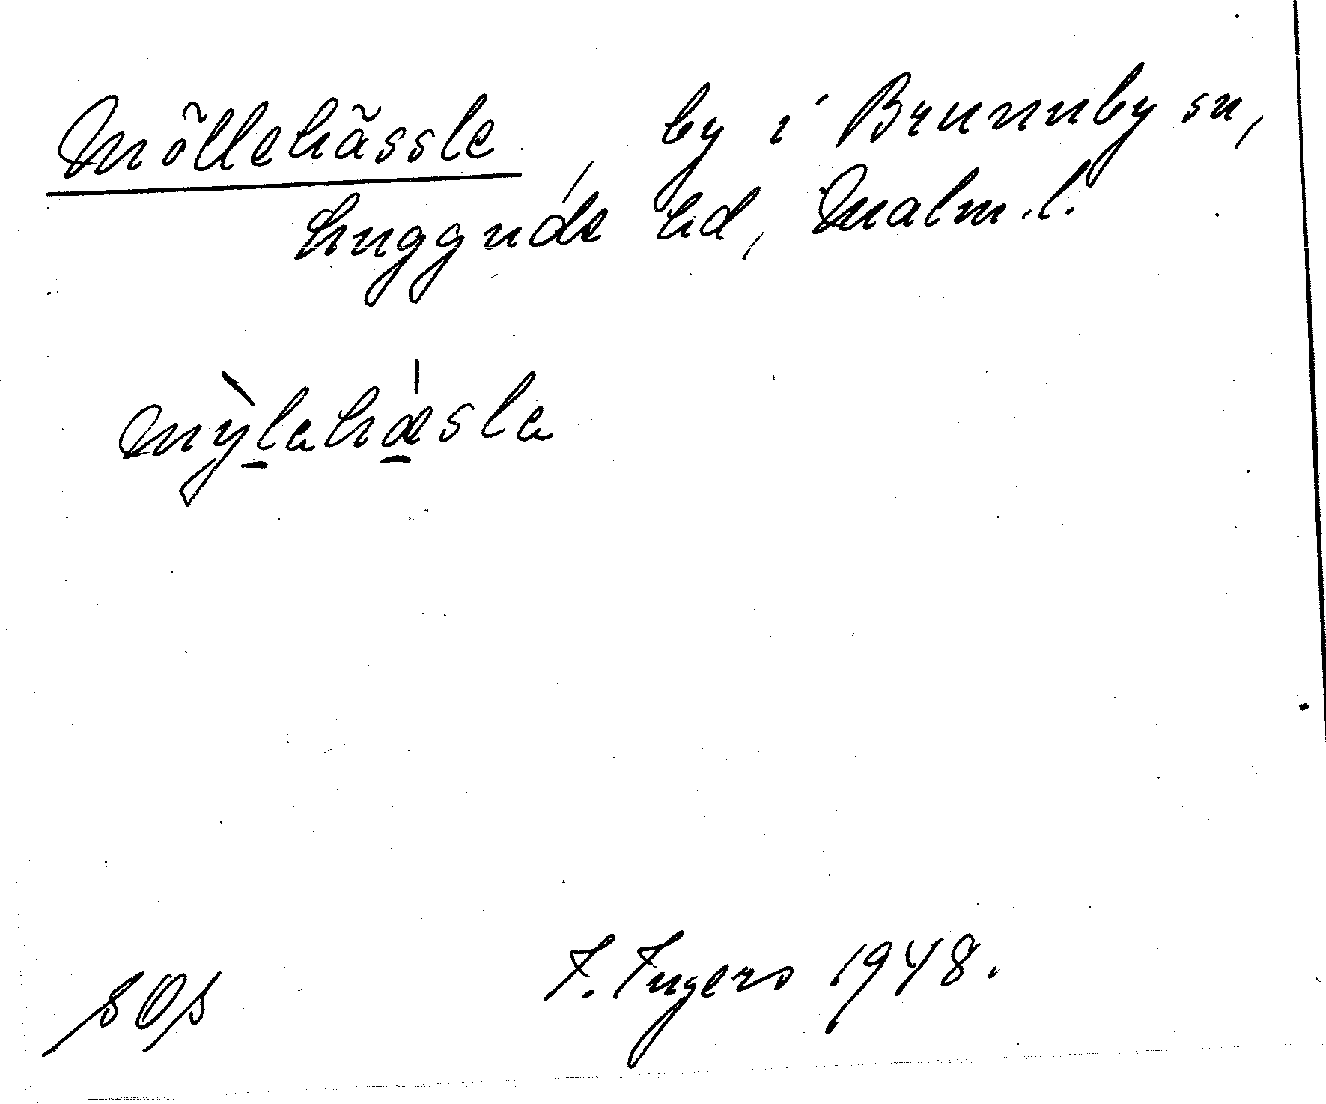 Möllehässle, by i Brunnby sn,
Luggude hd, Malm.l.
my̍lahæsla
I. Ingers 1948.